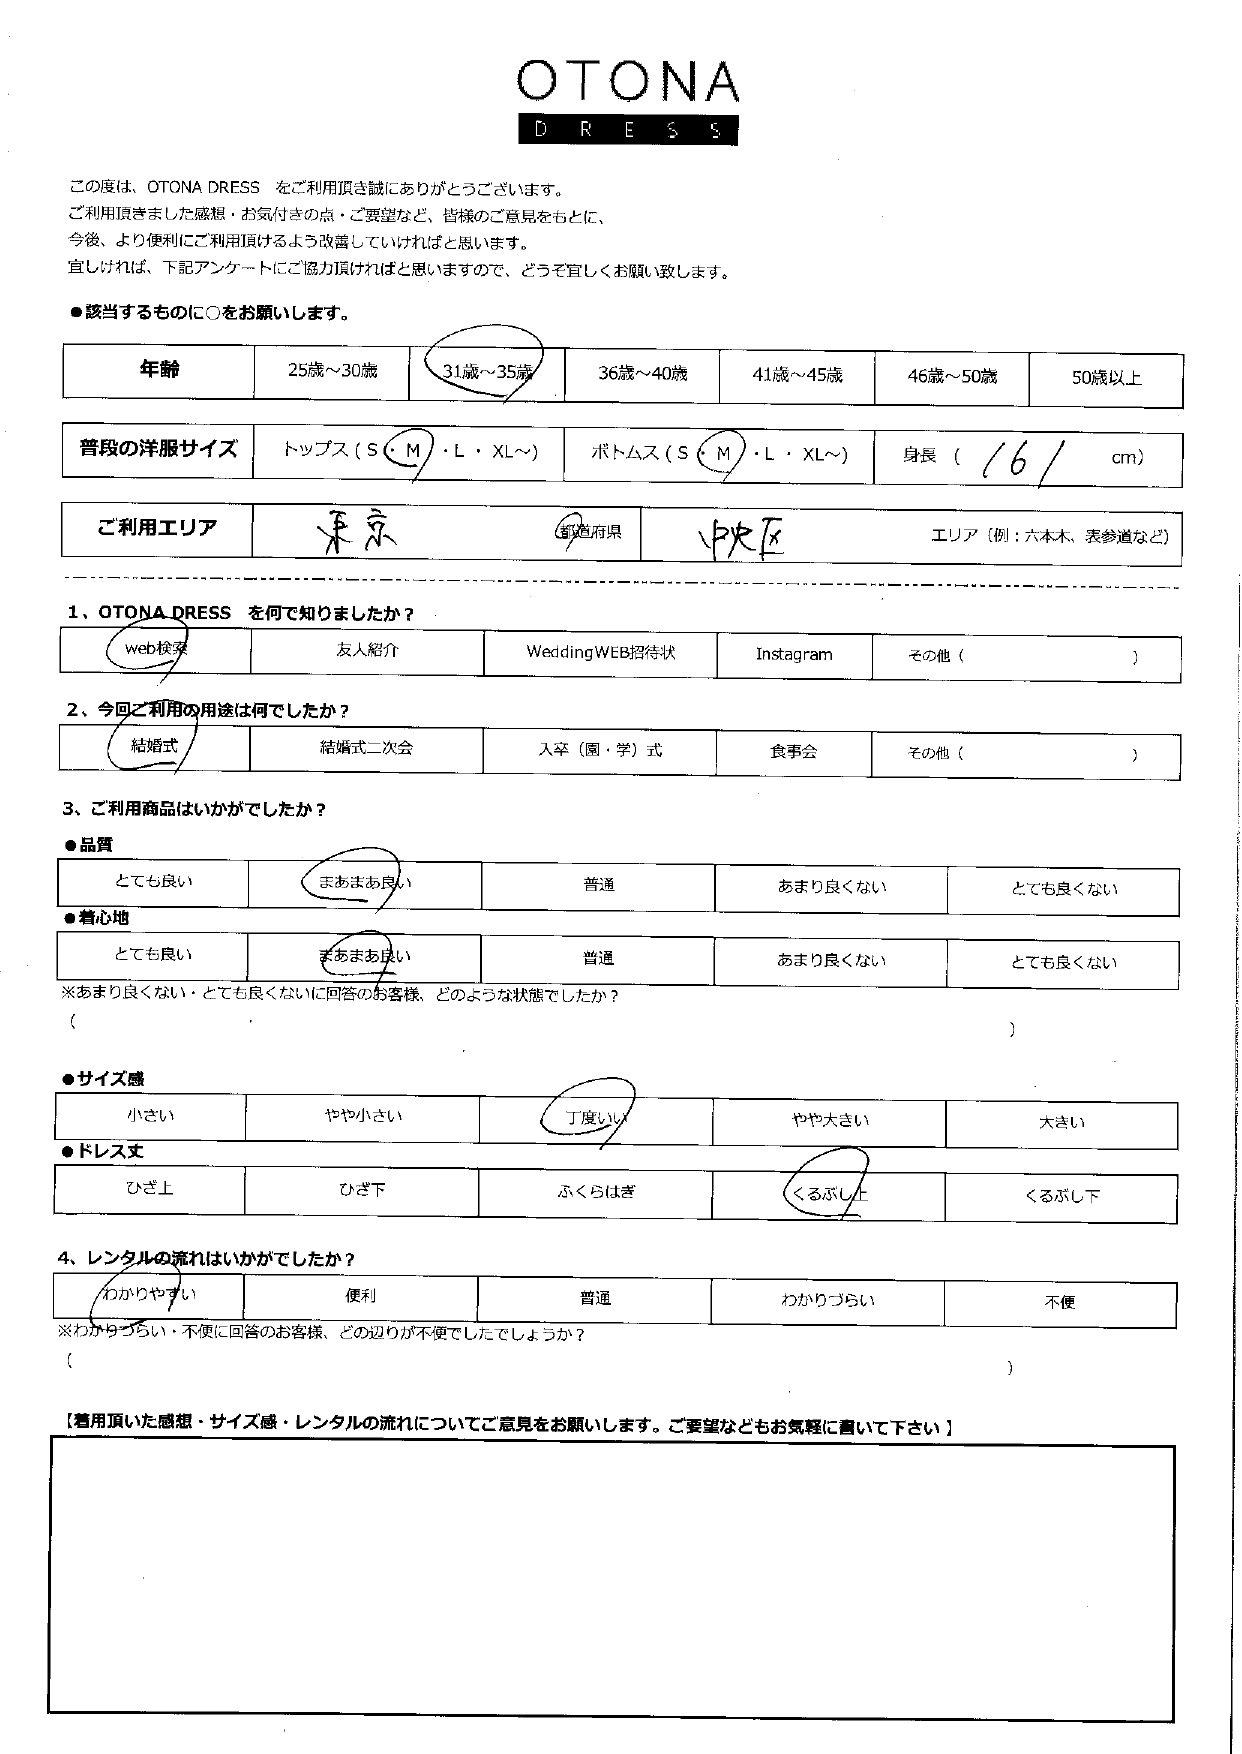 OTONA
DRESS
この度は、OTONA DRESS をご利用頂き誠にありがとうございます。
ご利用頂きました感想・お気付きの点・ご要望など、皆様のご意見をもとに、
今後、より便利にご利用頂けるよう改善していければと思います。
宜しければ、下記アンケートにご協力頂ければと思いますので、どうぞ宜しくお願い致します。
●該当するものに○をお願いします。
年齢 25歳～30歳 31歳～35歳 36歳～40歳 41歳～45歳 46歳～50歳 50歳以上
普段の洋服サイズ トップス ( S ・ M ・ L ・ XL～) ボトムス ( S ・ M ・ L ・ XL～) 身長 ( 161 cm)
ご利用エリア 東京 都道府県 中央区 エリア（例：六本木、表参道など）
1、OTONA DRESS を何で知りましたか？
web検索 友人紹介 WeddingWEB招待状 Instagram その他 ( )
2、今回ご利用の用途は何でしたか？
結婚式 結婚式二次会 入卒（園・学）式 食事会 その他 ( )
3、ご利用商品はいかがでしたか？
●品質
とても良い まあまあ良い 普通 あまり良くない とても良くない
●着心地
とても良い まあまあ良い 普通 あまり良くない とても良くない
※あまり良くない・とても良くないに回答のお客様、どのような状態でしたか？
( )
●サイズ感
小さい やや小さい 丁度いい やや大きい 大きい
●ドレス丈
ひざ上 ひざ下 ふくらはぎ くるぶし上 くるぶし下
4、レンタルの流れはいかがでしたか？
わかりやすい 便利 普通 わかりづらい 不便
※わかりづらい・不便に回答のお客様、どの辺りが不便でしたでしょうか？
( )
【着用頂いた感想・サイズ感・レンタルの流れについてご意見をお願いします。ご要望などもお気軽に書いて下さい】